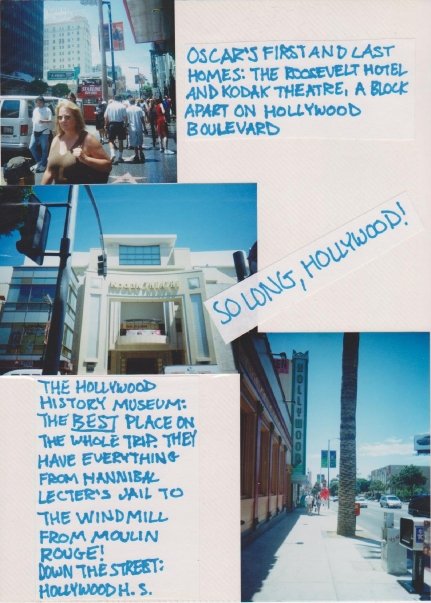 OSCAR'S FIRST AND LAST
HOMES: THE ROOSEVELT HOTEL
AND KODAK THEATRE, A BLOCK
APART ON HOLLYWOOD
BOULEVARD
KODAK THEATRE
SO LONG, HOLLYWOOD!
HOLLYWOOD
THE HOLLYWOOD
HISTORY MUSEUM:
THE BEST PLACE ON
THE WHOLE TRIP. THEY
HAVE EVERYTHING
FROM HANNIBAL
LECTER'S JAIL TO
THE WINDMILL
FROM MOULIN
ROUGE!
DOWN THE STREET:
HOLLYWOOD H.S.